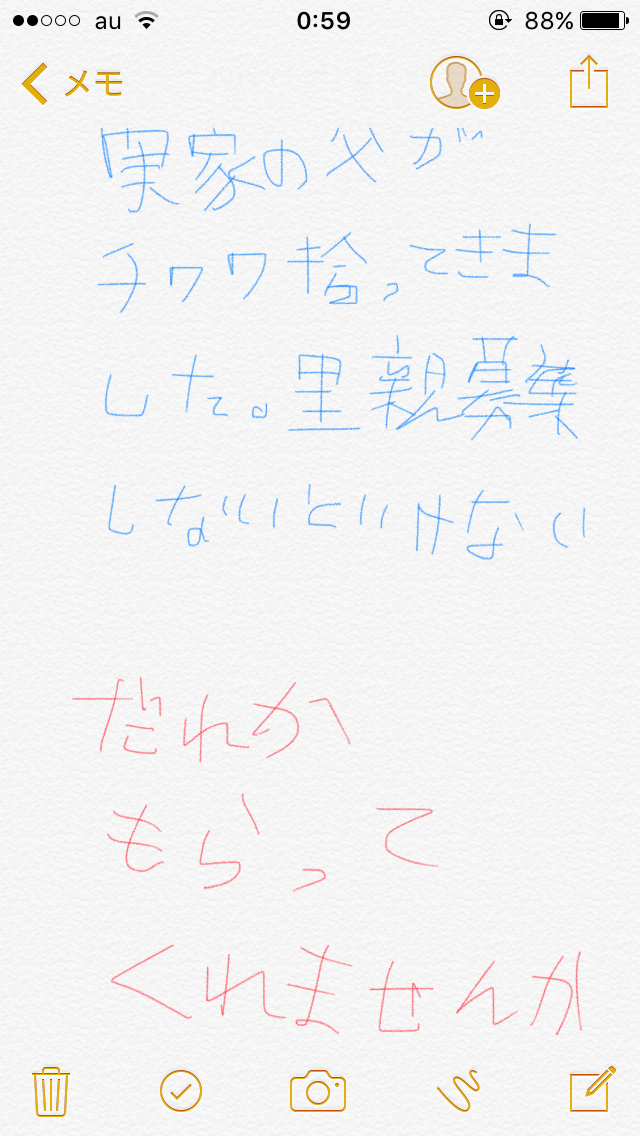 au 0:59 88%
メモ
実家の父が
チワワ捨ってきま
した。里親募集
しないといけない
だれか
もらって
くれませんか